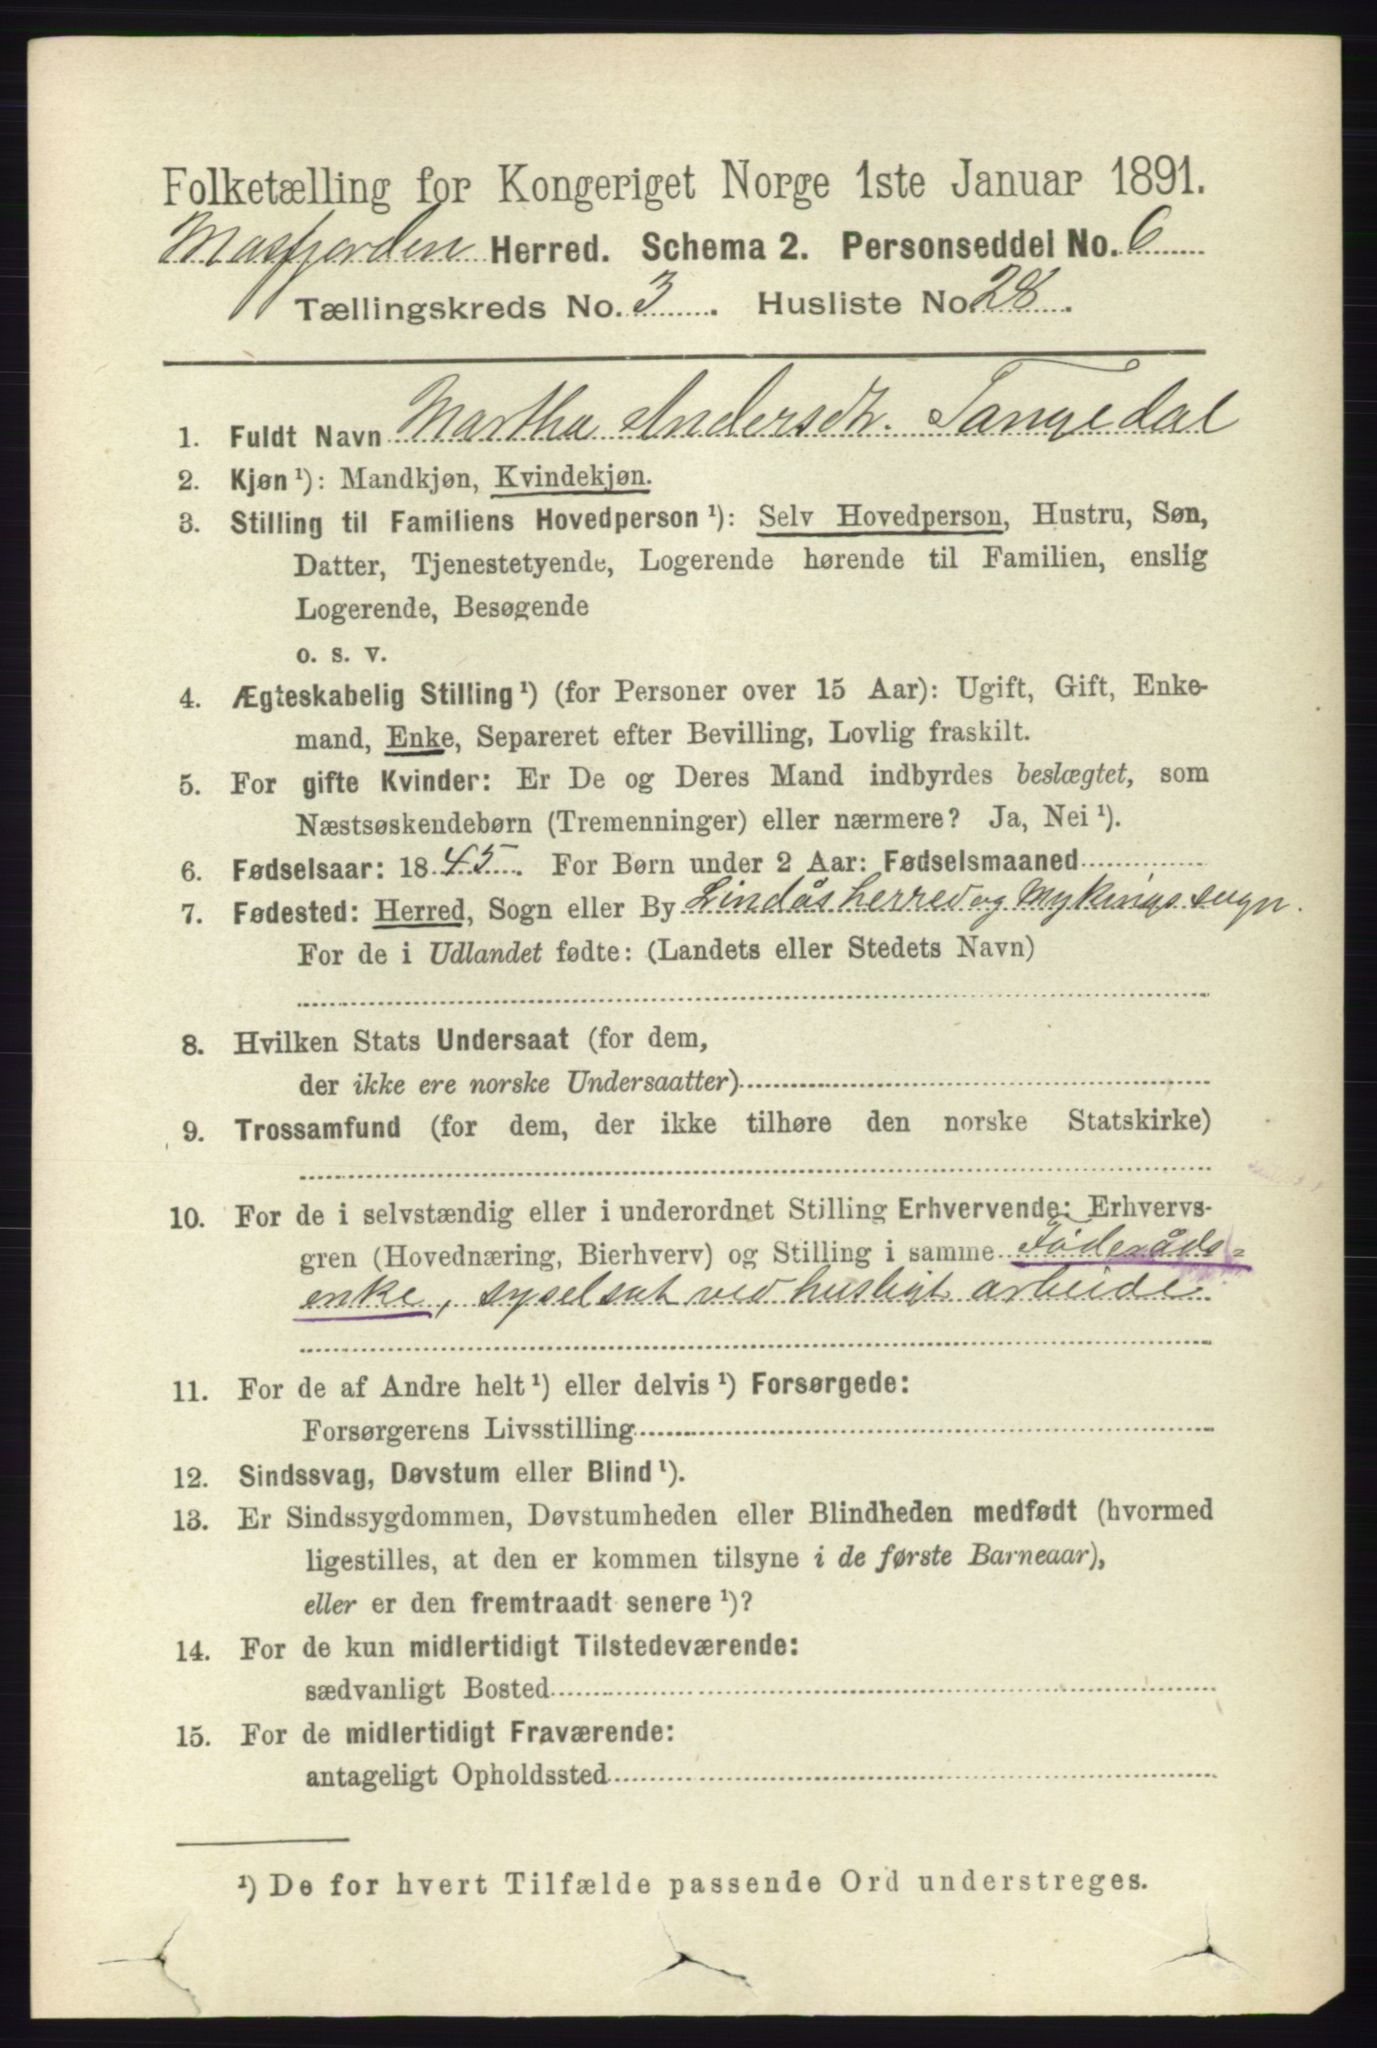 Folketælling for Kongeriget Norge 1ste Januar 1891.
Masfjorden Herred. Schema 2. Personseddel No. 6
Tællingskreds No. 3. Husliste No. 28.
1. Fuldt Navn Martha Andersdtr. Tangedal
2. Kjøn ¹): Mandkjøn, Kvindekjøn.
3. Stilling til Familiens Hovedperson ¹): Selv Hovedperson, Hustru, Søn,
Datter, Tjenestetyende, Logerende hørende til Familien, enslig
Logerende, Besøgende
o. s. v.
4. Ægteskabelig Stilling ¹) (for Personer over 15 Aar): Ugift, Gift, Enke-
mand, Enke, Separeret efter Bevilling, Lovlig fraskilt.
5. For gifte Kvinder: Er De og Deres Mand indbyrdes beslægtet, som
Næstsøskendebørn (Tremenninger) eller nærmere? Ja, Nei ¹).
6. Fødselsaar: 1845. For Børn under 2 Aar: Fødselsmaaned
7. Fødested: Herred, Sogn eller By Lindås herred og Mykings sogn.
For de i Udlandet fødte: (Landets eller Stedets Navn)
8. Hvilken Stats Undersaat (for dem,
der ikke ere norske Undersaatter)
9. Trossamfund (for dem, der ikke tilhøre den norske Statskirke)
10. For de i selvstændig eller i underordnet Stilling Erhvervende: Erhvervs-
gren (Hovednæring, Bierhverv) og Stilling i samme Föderåds-
enke, syselsat ved husligt arbeide.
11. For de af Andre helt ¹) eller delvis ¹) Forsørgede:
Forsørgerens Livsstilling
12. Sindssvag, Døvstum eller Blind ¹).
13. Er Sindssygdommen, Døvstumheden eller Blindheden medfødt (hvormed
ligestilles, at den er kommen tilsyne i de første Barneaar),
eller er den fremtraadt senere ¹)?
14. For de kun midlertidigt Tilstedeværende:
sædvanligt Bosted
15. For de midlertidigt Fraværende:
antageligt Opholdssted
¹) De for hvert Tilfælde passende Ord understreges.